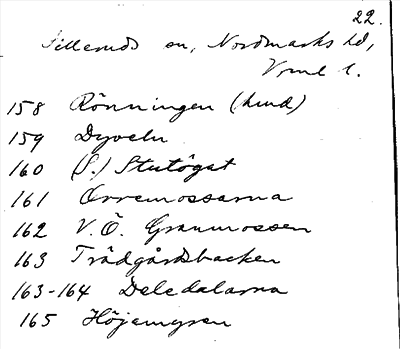 22.
Silleruds sn, Nordmarks hd,
Vrml l.
158 Rönningen (lund)
159 Dyveln
160 (S.) Stutögat
161 Orremossarna
162 V. Ö. Granmossen
163 Trädgårdsbacken
163-164 Deledalarna
165 Höjemyren